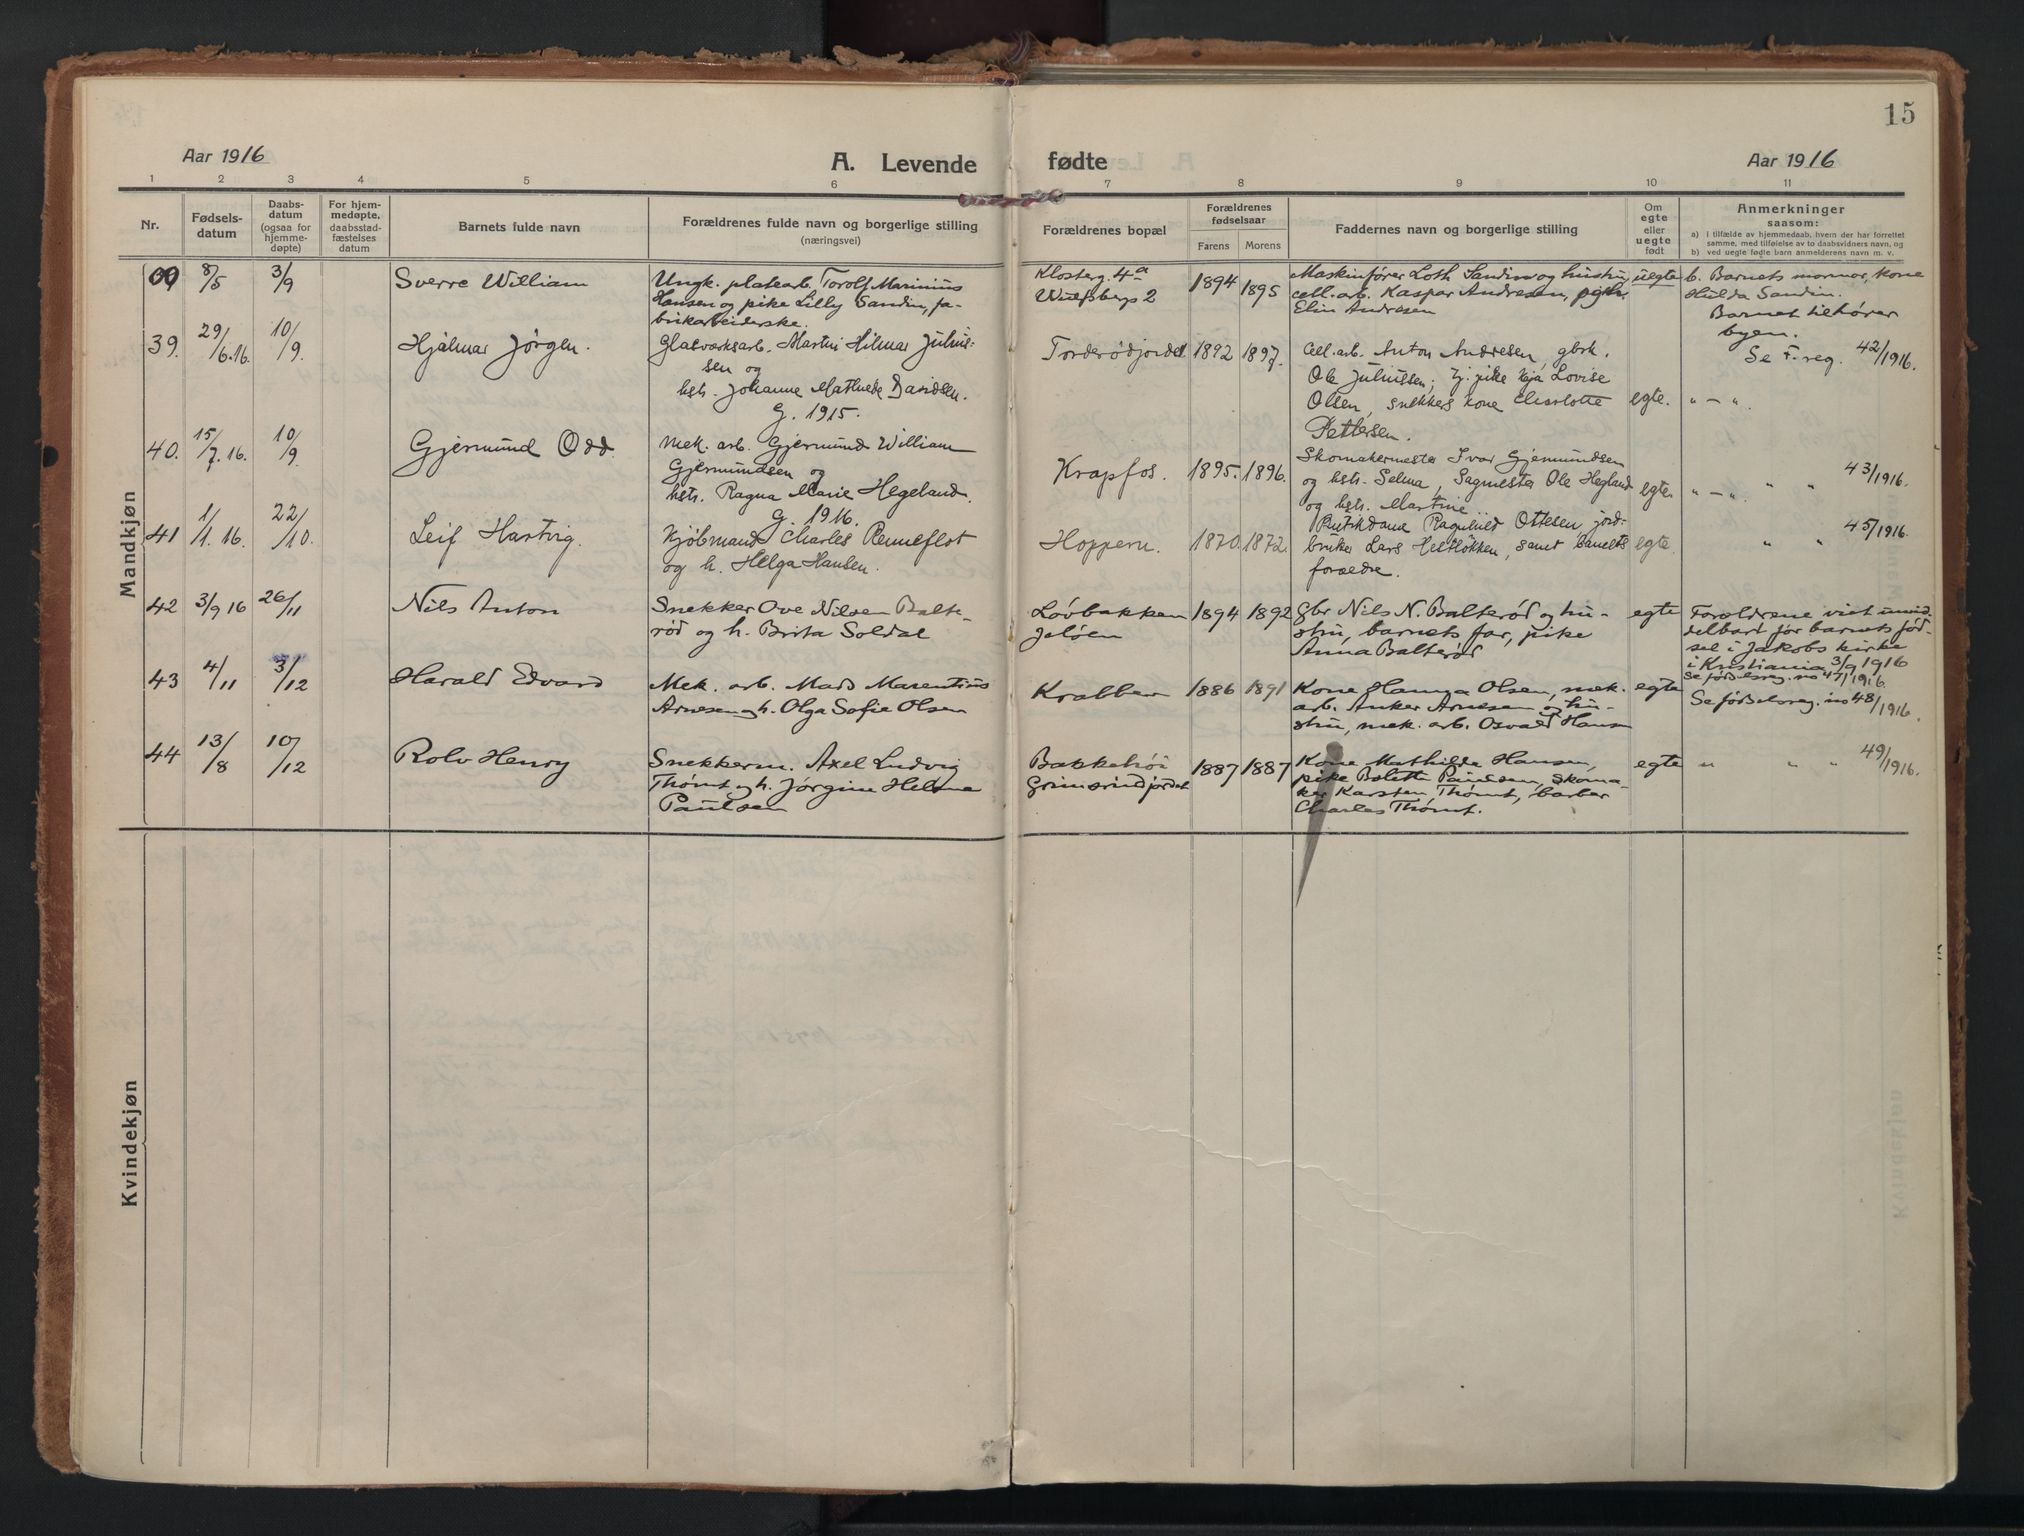 15
Aar 1916
A. Levende fødte
Aar 1916
1 2 3 4 5 6 7 8 9 10 11
Nr.
Fødsels-
datum
Daabs-
datum
(ogsaa for
hjemme-
døpte)
For hjem-
medøpte,
daabsstad-
fæstelses
datum
Barnets fulde navn
Forældrenes fulde navn og borgerlige stilling
(næringsvei)
Forældrenes bopæl
Forældrenes
fødselsaar
Farens Morens
Faddernes navn og borgerlige stilling
Om
egte
eller
uegte
født
Anmerkninger
saasom:
a) I tilfælde av hjemmedaab, hvem der har forrettet
samme, med tilføielse av to daabsvidners navn, og
b) ved uegte fødte barn anmelderens navn m. v.
Mandkjøn
8/5 3/9 Sverre William
Ungk. platearb. Torolf Marinius
Hansen og pike Lilly Sandin, fa-
brikarbeiderske.
Klosterg. 4a
Wulfsbergs 2
1894 1895
Maskinfører Loth Sandin og hustru
cell. arb. Kaspar Andresen,
Elin Andresen
uegte
b. Barnets mormor, kone
Hulda Sandin.
Barnet tilhører
byen.
39. 29/6.16. 10/9. Hjalmar Jørgen.
Glasværksarb. Martin Hilmar Juliu-
sen og
hstr. Johanne Mathilde Davidsen.
G. 1915.
Torderødjordet 1892 1897.
Cell. arb. Anton Andresen, gbrk.
Ole Juliussen; tj. pike Lovise
Olsen, snekkers kone Charlotte
Pettersen.
egte.
Se F. reg. 42/1916.
" – ".
40. 15/7.16. 10/9. Gjermund Odd.
Mek. arb. Gjermund William
Gjermundsen og
hstr. Ragna Marie Hegeland.
G. 1916.
Krapfos. 1895. 1896.
Skomakermester Ivar Gjermundsen
og hstr. Selma, Sagmester Ole Hegland
og hstr. Martine.
egte.
" – ". " " 43/1916.
41 1/1.16. 22/10. Leif Hartvig.
Kjøbmand Charles Renneflot
og h. Helga Hansen.
Hoppern. 1870. 1872.
Butikdame Ragnhild Ottesen, jord-
bruker Lars Hestløkken, samt barnets
forældre.
egte.
" " 45/1916.
42 3/9 16 26/11 Nils Anton
Snekker Ove Nilsen Balte-
rød og h. Brita Soldal
Løvbakken
Jeløen
1894 1892
Gbr Nils N. Balterød og hu-
stru, barnets far, pike
Anna Balterød
egte
Forældrene viet umid-
delbart før barnets fød-
sel i Jakobs kirke
i Kristiania 3/9 1916
Se fødselsreg. no 47/1916.
43 4/11 3/12 Harald Edvard
Mek. arb. Mads Marentius
Arnesen og h. Olga Sofie Olsen
Krabbern 1886 1891
Kone Hanna Olsen, mek.
arb. Anker Arnesen og hu-
stru, mek. arb. Osvald Hansen
egte
Se fødselsreg. no 48/1916.
44 13/8 10/12 Rolv Henry
Snekkerm. Axel Ludvig
Thømt og h. Jørgine Helene
Paulsen
Bakkehøi
Grimsrødjordet
1887 1887
Kone Mathilde Hansen,
pike Bolette Paulsen, skoma-
ker Karsten Thømt, barber
Charles Thømt.
egte
" " " 49/1916.
Kvindekjøn